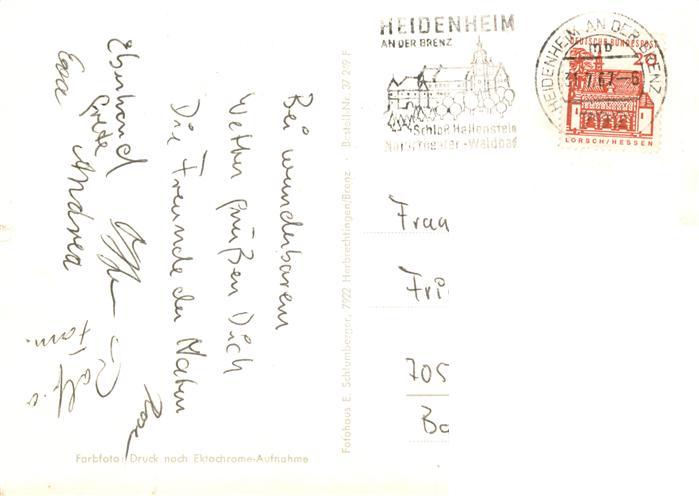 HEIDENHEIM
AN DER BRENZ
Schloß Hellenstein
Naturtheater-Waldbad
HEIDENHEIM AN DER BRENZ
mb
DEUTSCHE BUNDESPOST
20
LORSCH/HESSEN
Bei wunderbarem
Wetter grüßen Dich
Die Freunde der Natur
Eberhard
Grete
Andrea
Fam.
Frau
Fri
705
Ba
Fotohaus E. Schlumberger, 7922 Herbrechtingen/Brenz · Bestell-Nr. 37 249 F
Farbfoto: Druck nach Ektachrome-Aufnahme